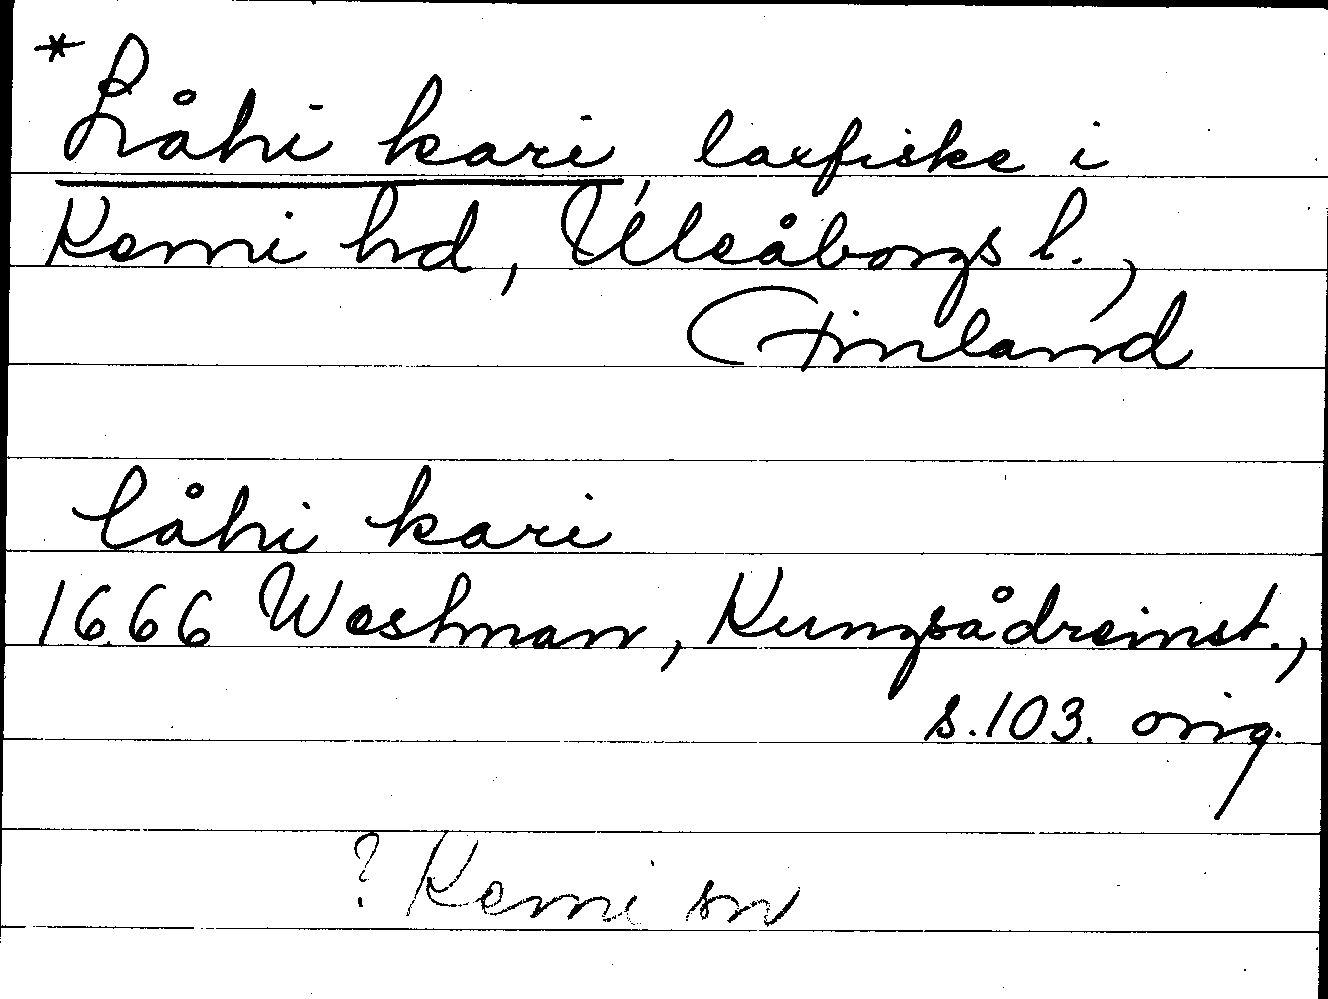 * Låhi kari, laxfiske i
Kemi hd, Uleåborgs l.,
Finland
låhi kari
1666 Westman, Kungsådreinst.,
s.103. orig.
? Kemi sn